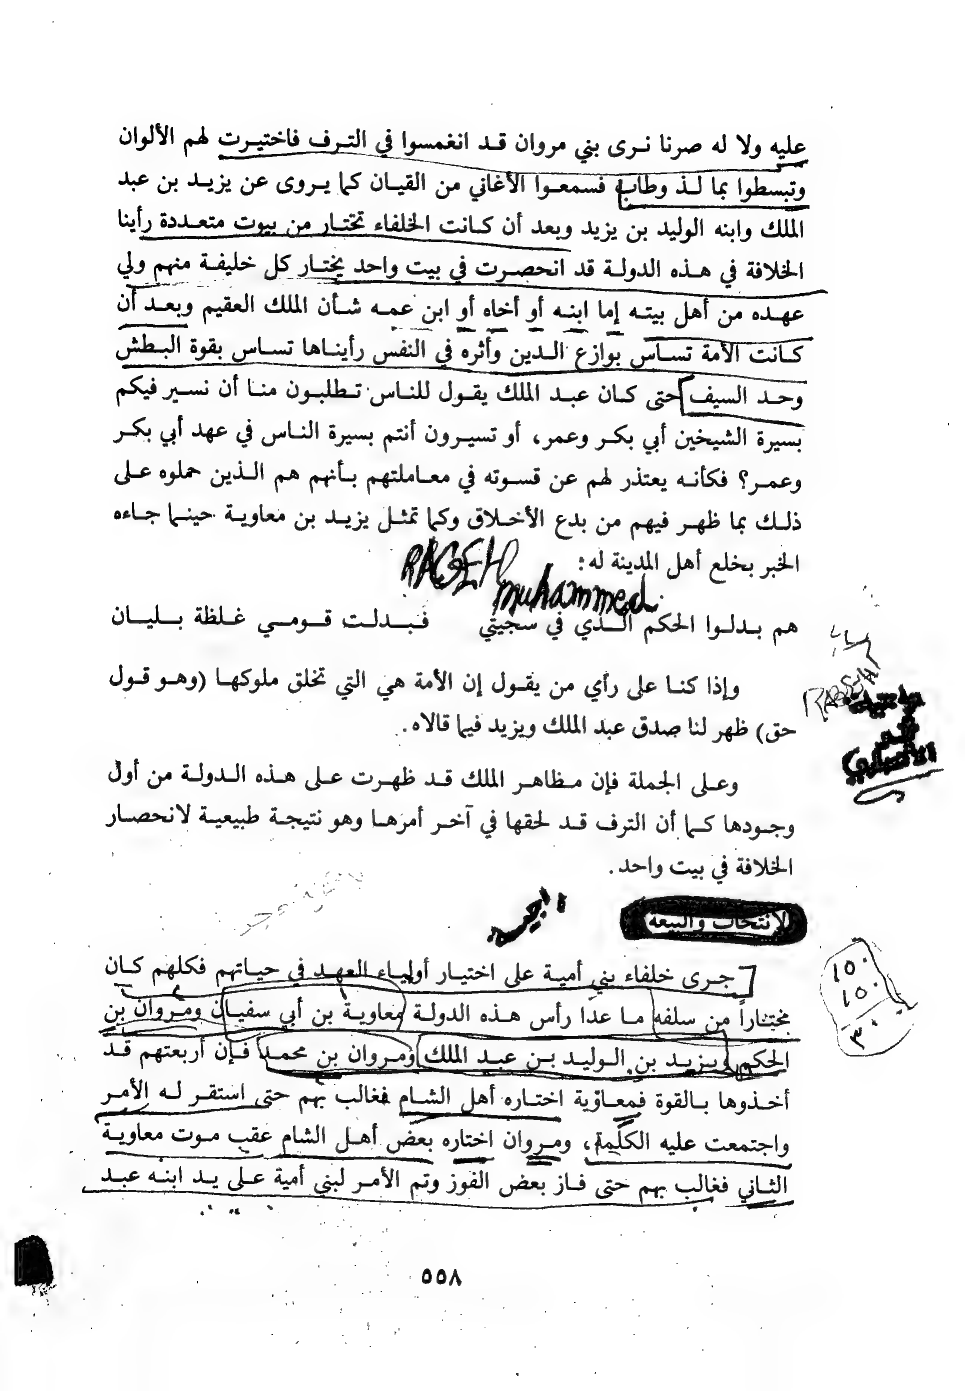 عليه ولا له صرنا نرى بني مروان قد انغمسوا في الترف فاختيرت لهم الألوان
وتبسطوا بما لذ وطاب فسمعوا الأغاني من القيان كما يروى عن يزيد بن عبد
الملك وابنه الوليد بن يزيد وبعد أن كانت الخلفاء تختار من بيوت متعددة رأينا
الخلافة في هذه الدولة قد انحصرت في بيت واحد يختار كل خليفة منهم ولي
عهده من أهل بيته إما ابنه أو أخاه أو ابن عمه شأن الملك العقيم وبعد أن
كانت الأمة تساس بوازع الدين وأثره في النفس رأيناها تساس بقوة البطش
وحد السيف حتى كان عبد الملك يقول للناس تطلبون منا أن نسير فيكم
بسيرة الشيخين أبي بكر وعمر، أو تسيرون أنتم بسيرة الناس في عهد أبي بكر
وعمر؟ فكأنه يعتذر لهم عن قسوته في معاملتهم بأنهم هم الذين حملوه على
ذلك بما ظهر فيهم من بدع الأخلاق وكما تمثل يزيد بن معاوية حينما جاءه
الخبر بخلع أهل المدينة له:
RAGEH
muhammed
هم بدلوا الحكم الذي في سجيتي فبدلت قومي غلظة بليان
وإذا كنا على رأي من يقول إن الأمة هي التي تخلق ملوكها (وهو قول
حق) ظهر لنا صدق عبد الملك ويزيد فيما قالاه.
وعلى الجملة فإن مظاهر الملك قد ظهرت على هذه الدولة من أول
وجودها كما أن الترف قد لحقها في آخر أمرها وهو نتيجة طبيعية لانحصار
الخلافة في بيت واحد.
الانتخاب والبيعة
جرى خلفاء بني أمية على اختيار أولياء العهد في حياتهم فكلهم كان
مختاراً من سلفه ما عدا رأس هذه الدولة معاوية بن أبي سفيان ومروان بن
الحكم ويزيد بن الوليد بن عبد الملك ومروان بن محمد فإن أربعتهم قد
أخذوها بالقوة فمعاوية اختاره أهل الشام فغالب بهم حتى استقر له الأمر
واجتمعت عليه الكلمة، ومروان اختاره بعض أهل الشام عقب موت معاوية
الثاني فغالب بهم حتى فاز بعض الفوز وتم الأمر لبني أمية على يد ابنه عبد
١٥٠
١٥٠
٣٠
٥٥٨